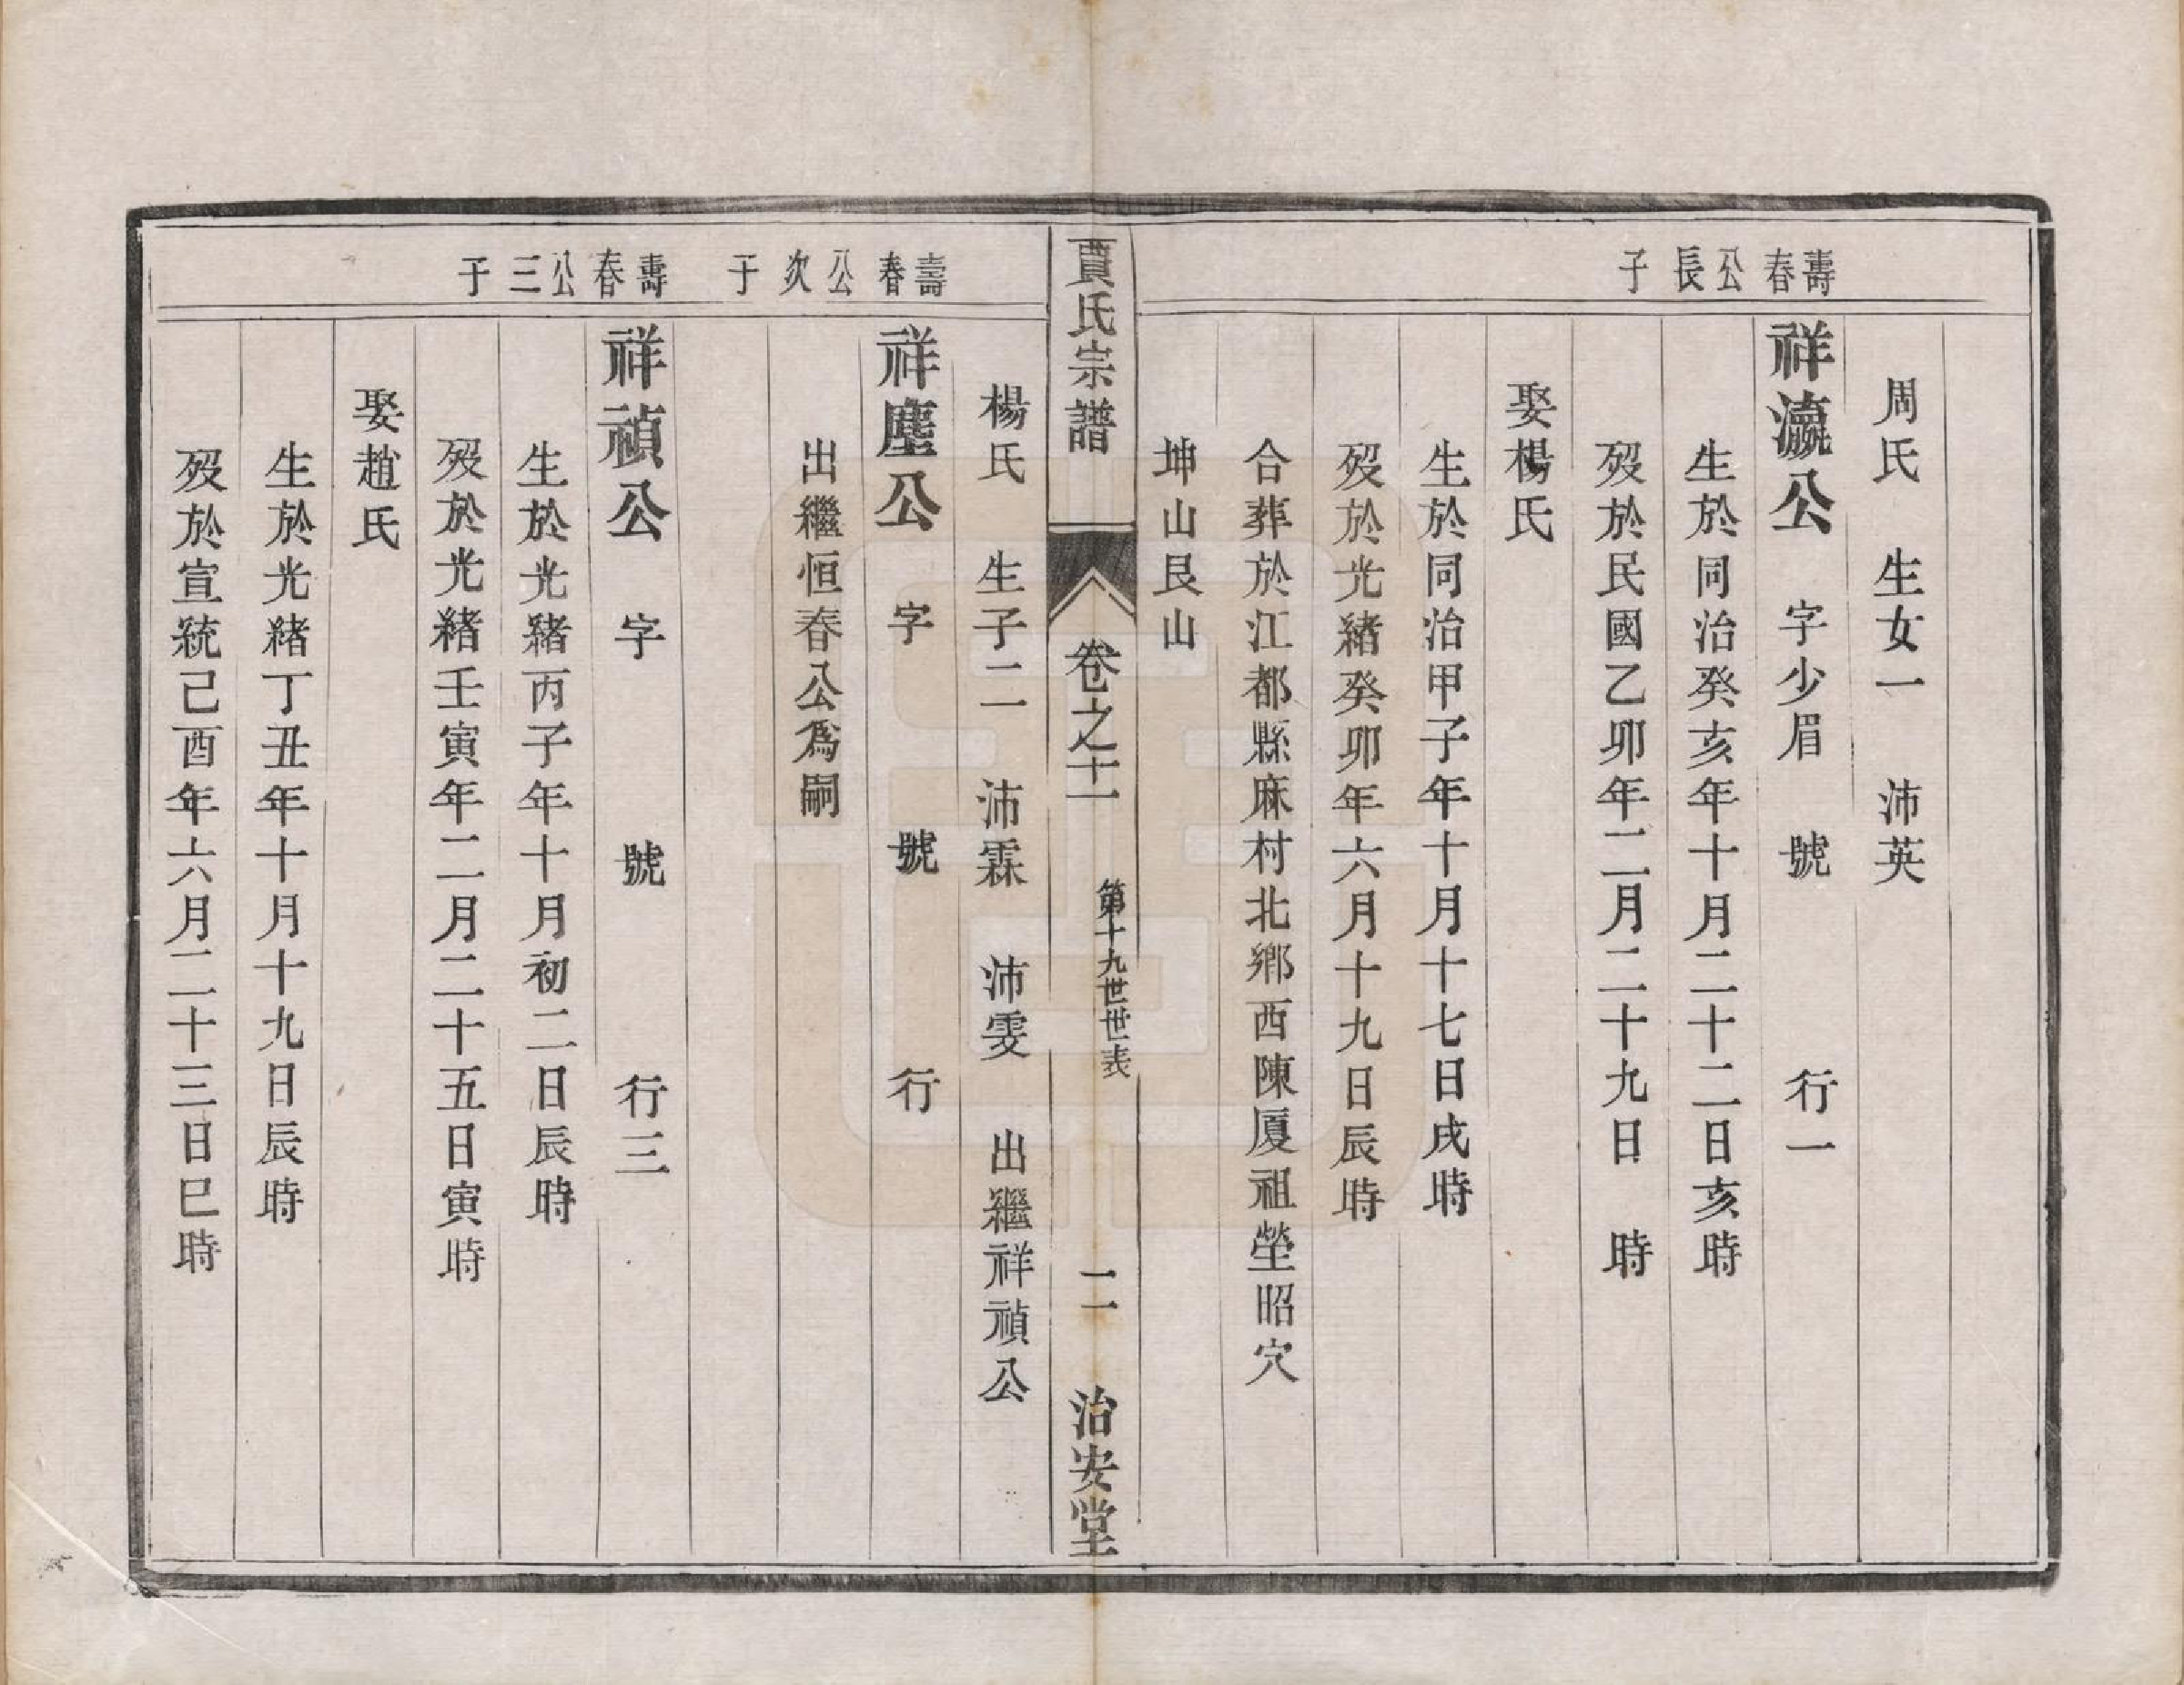 周氏　生女一　沛英
壽春公長子
祥瀛公　字少眉　號　行一
生於同治癸亥年十月二十二日亥時
歿於民國乙卯年二月二十九日　時
娶楊氏
生於同治甲子年十月十七日戌時
歿於光緒癸卯年六月十九日辰時
合葬於江都縣麻村北鄉西陳厦祖塋昭穴
坤山艮山
賈氏宗譜　卷之十一　第十九世世表　二　治安堂
楊氏　生子二　沛霖　沛雯　出繼祥禎公
壽春公次子
祥麈公　字　號　行
出繼恒春公爲嗣
壽春公三子
祥禎公　字　號　行三
生於光緒丙子年十月初二日辰時
歿於光緒壬寅年二月二十五日寅時
娶趙氏
生於光緒丁丑年十月十九日辰時
歿於宣統己酉年六月二十三日巳時